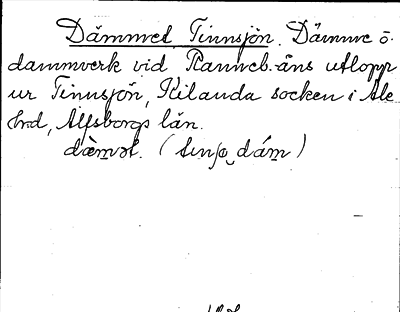 Dämmet Tinnsjön. Dämme o.
dammverk vid Ranneb.-åns utlopp
ur Tinnsjön, Kilanda socken i Ale
hrd, Älfsborgs län.
dämət. (